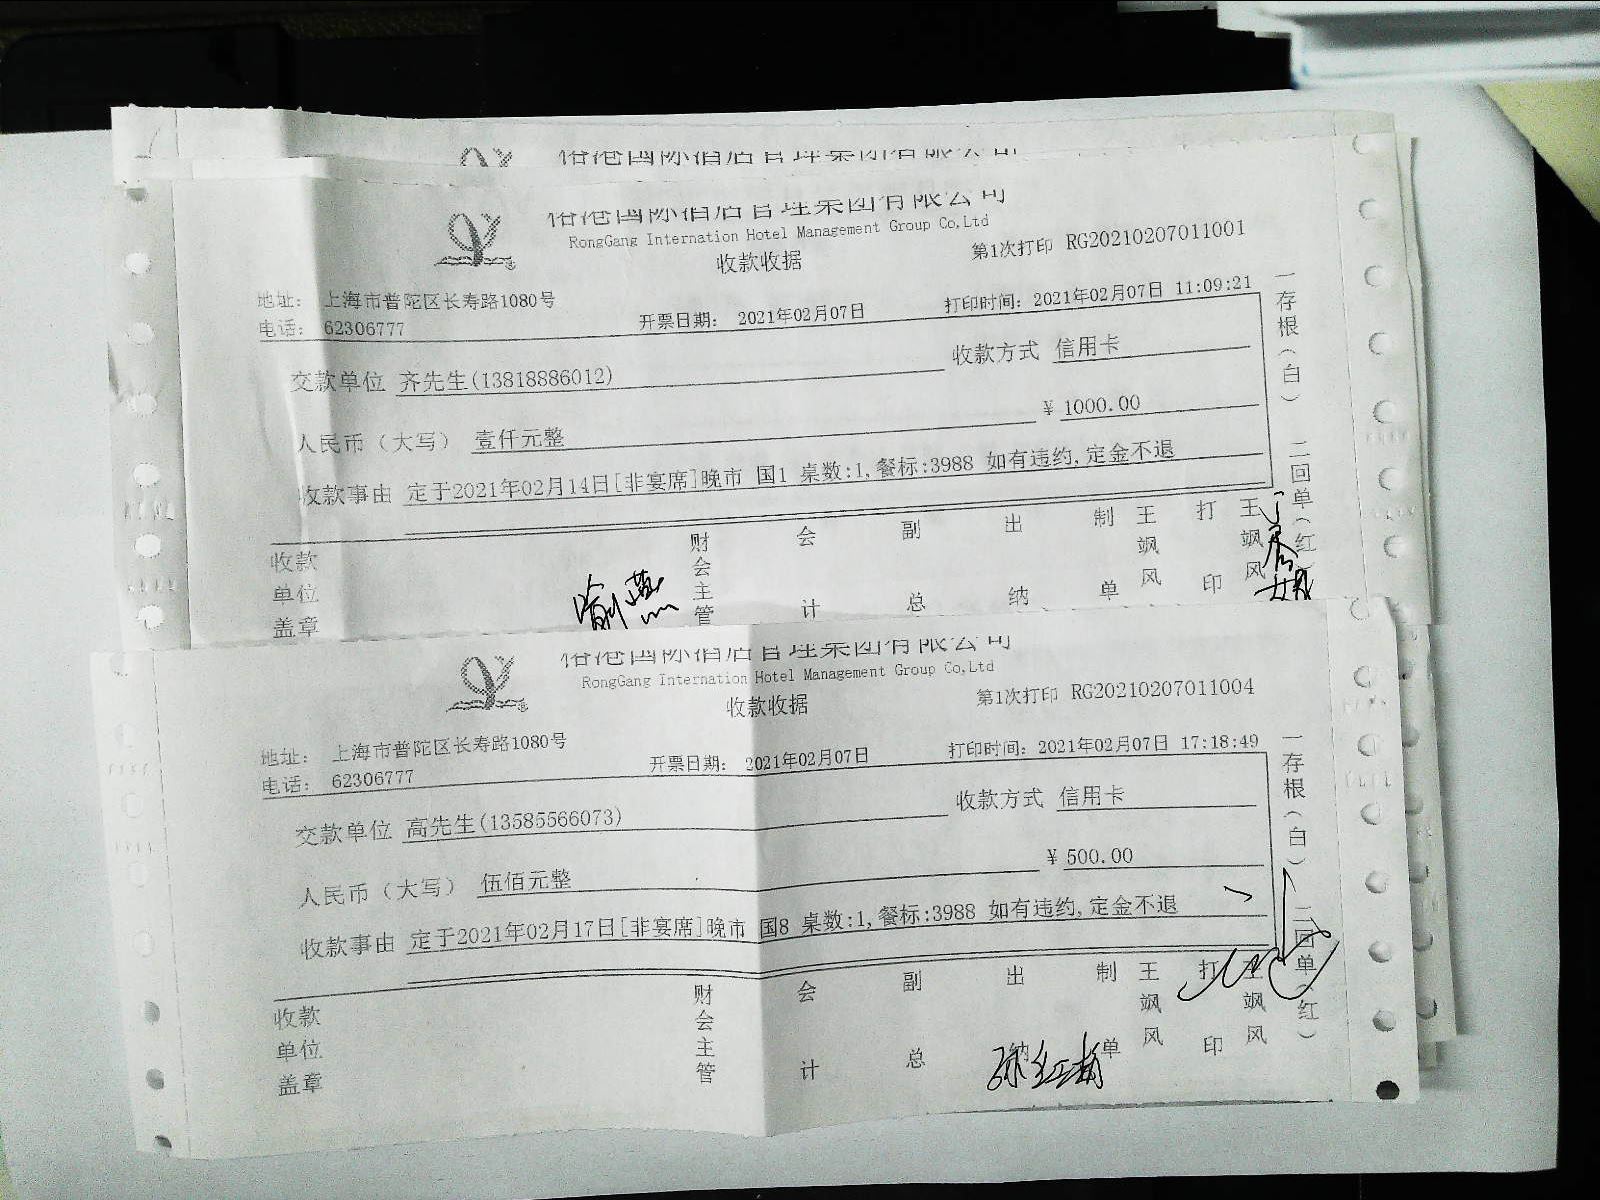 国际酒店管理集团有限公司
国际酒店管理集团有限公司
RongGang Internation Hotel Management Group Co,Ltd
收款收据
第1次打印 RG20210207011001
地址: 上海市普陀区长寿路1080号
电话: 62306777
开票日期: 2021年02月07日
打印时间: 2021年02月07日 11:09:21
交款单位 齐先生(13818886012)
收款方式 信用卡
人民币（大写） 壹仟元整
¥ 1000.00
收款事由 定于2021年02月14日[非宴席]晚市 国1 桌数:1,餐标:3988 如有违约,定金不退
收款单位盖章
财会主管
会计
副总
出纳
制单 王飒风
打印 王飒风
一存根（白） 二回单（红）
国际酒店管理集团有限公司
RongGang Internation Hotel Management Group Co,Ltd
收款收据
第1次打印 RG20210207011004
地址: 上海市普陀区长寿路1080号
电话: 62306777
开票日期: 2021年02月07日
打印时间: 2021年02月07日 17:18:49
交款单位 高先生(13585566073)
收款方式 信用卡
人民币（大写） 伍佰元整
¥ 500.00
收款事由 定于2021年02月17日[非宴席]晚市 国8 桌数:1,餐标:3988 如有违约,定金不退
收款单位盖章
财会主管
会计
副总
出纳
制单 王飒风
打印 王飒风
一存根（白） 二回单（红）